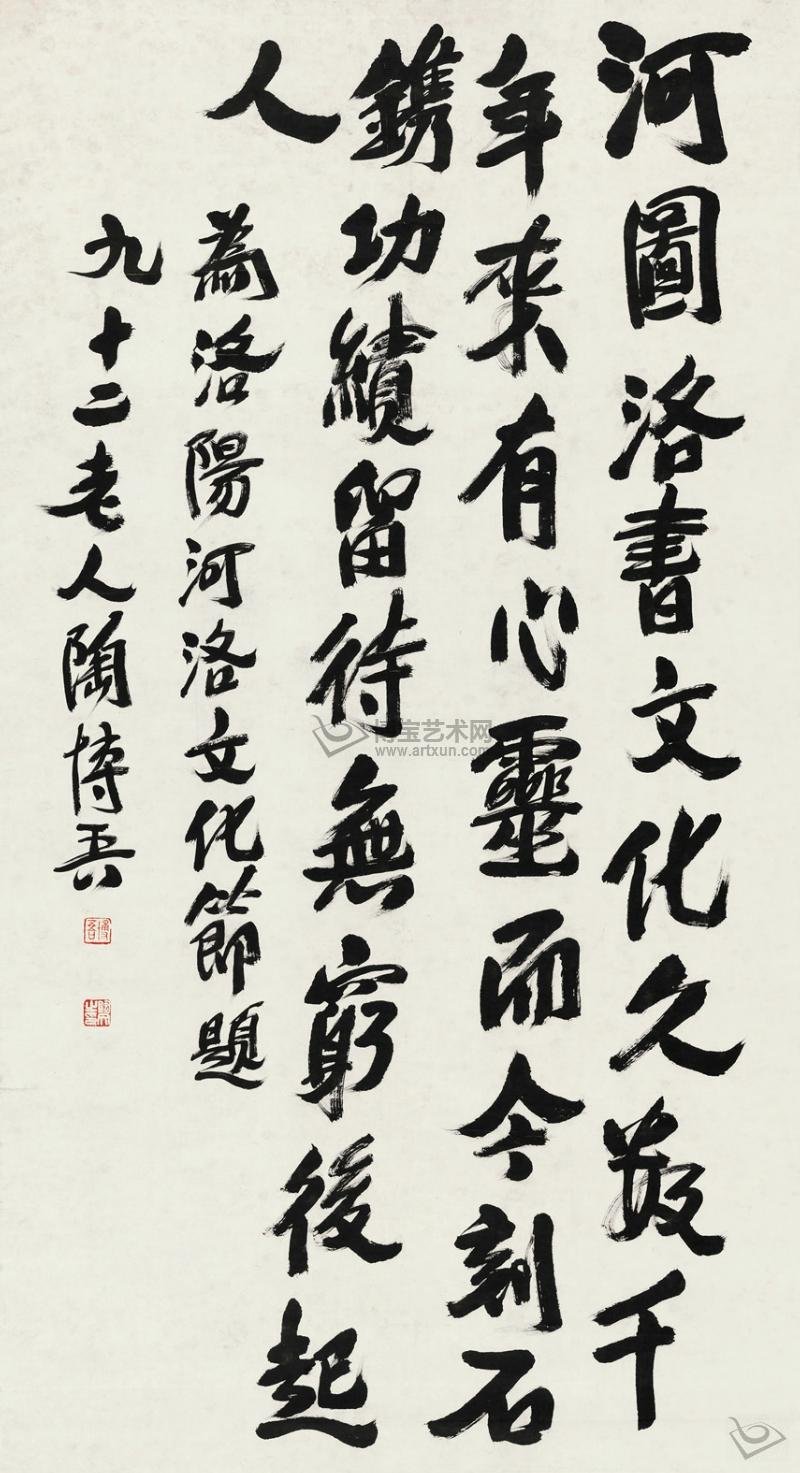 河圖洛書文化久數千
年來有心靈而今刻石
鐫功績留待無窮後起
人
為洛陽河洛文化節題
九十二老人陶博吾
博吾
博宝艺术网
www.artxun.com